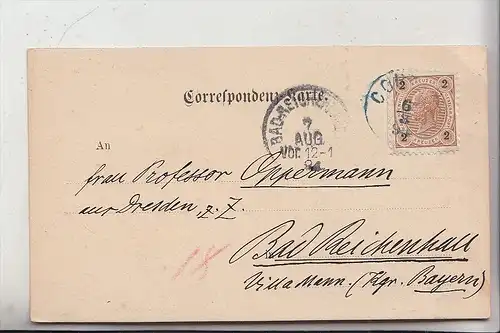 2 2
COL
Correspondenz-Karte.
BAD-REICHENHALL
7
AUG.
Vor. 12-1
94
2 KREUZER 2
An
Frau Professor Oppermann
aus Dresden z. Z.
Bad Reichenhall
18
Villa Mann. (Kgr. Bayern)